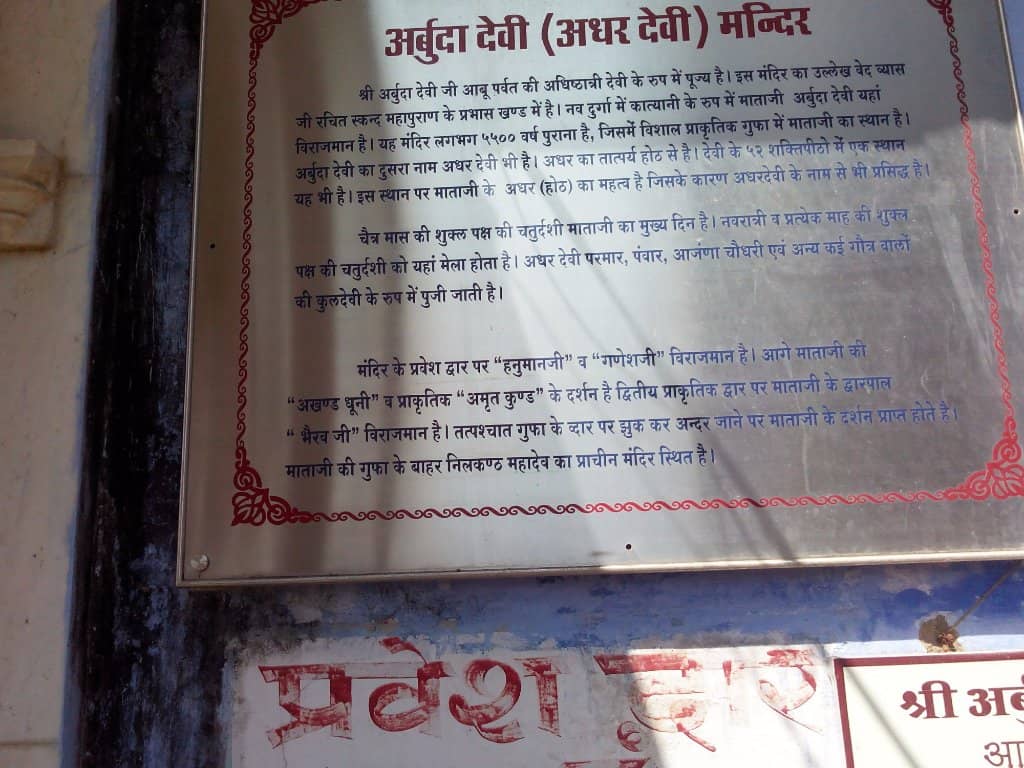 अर्बुदा देवी (अधर देवी) मन्दिर
श्री अर्बुदा देवी जी आबू पर्वत की अधिष्ठात्री देवी के रुप में पूज्य है। इस मंदिर का उल्लेख वेद व्यास
जी रचित स्कन्द महापुराण के प्रभास खण्ड में है। नव दुर्गा में कात्यानी के रुप में माताजी अर्बुदा देवी यहां
विराजमान है। यह मंदिर लगभग ५५०० वर्ष पुराना है, जिसमें विशाल प्राकृतिक गुफा में माताजी का स्थान है।
अर्बुदा देवी का दुसरा नाम अधर देवी भी है। अधर का तात्पर्य होठ से है। देवी के ५२ शक्तिपीठो में एक स्थान
यह भी है। इस स्थान पर माताजी के अधर (होठ) का महत्व है जिसके कारण अधरदेवी के नाम से भी प्रसिद्ध है।
चैत्र मास की शुक्ल पक्ष की चतुर्दशी माताजी का मुख्य दिन है। नवरात्री व प्रत्येक माह की शुक्ल
पक्ष की चतुर्दशी को यहां मेला होता है। अधर देवी परमार, पंवार, आजंणा चौधरी एवं अन्य कई गौत्र वालों
की कुलदेवी के रुप में पुजी जाती है।
मंदिर के प्रवेश द्वार पर “हनुमानजी” व “गणेशजी” विराजमान है। आगे माताजी की
“अखण्ड धूनी” व प्राकृतिक “अमृत कुण्ड” के दर्शन है द्वितीय प्राकृतिक द्वार पर माताजी के द्वारपाल
“ भैरव जी” विराजमान है। तत्पश्चात गुफा के व्दार पर झुक कर अन्दर जाने पर माताजी के दर्शन प्राप्त होते है।
माताजी की गुफा के बाहर निलकण्ठ महादेव का प्राचीन मंदिर स्थित है।
प्रवेश द्वार
श्री